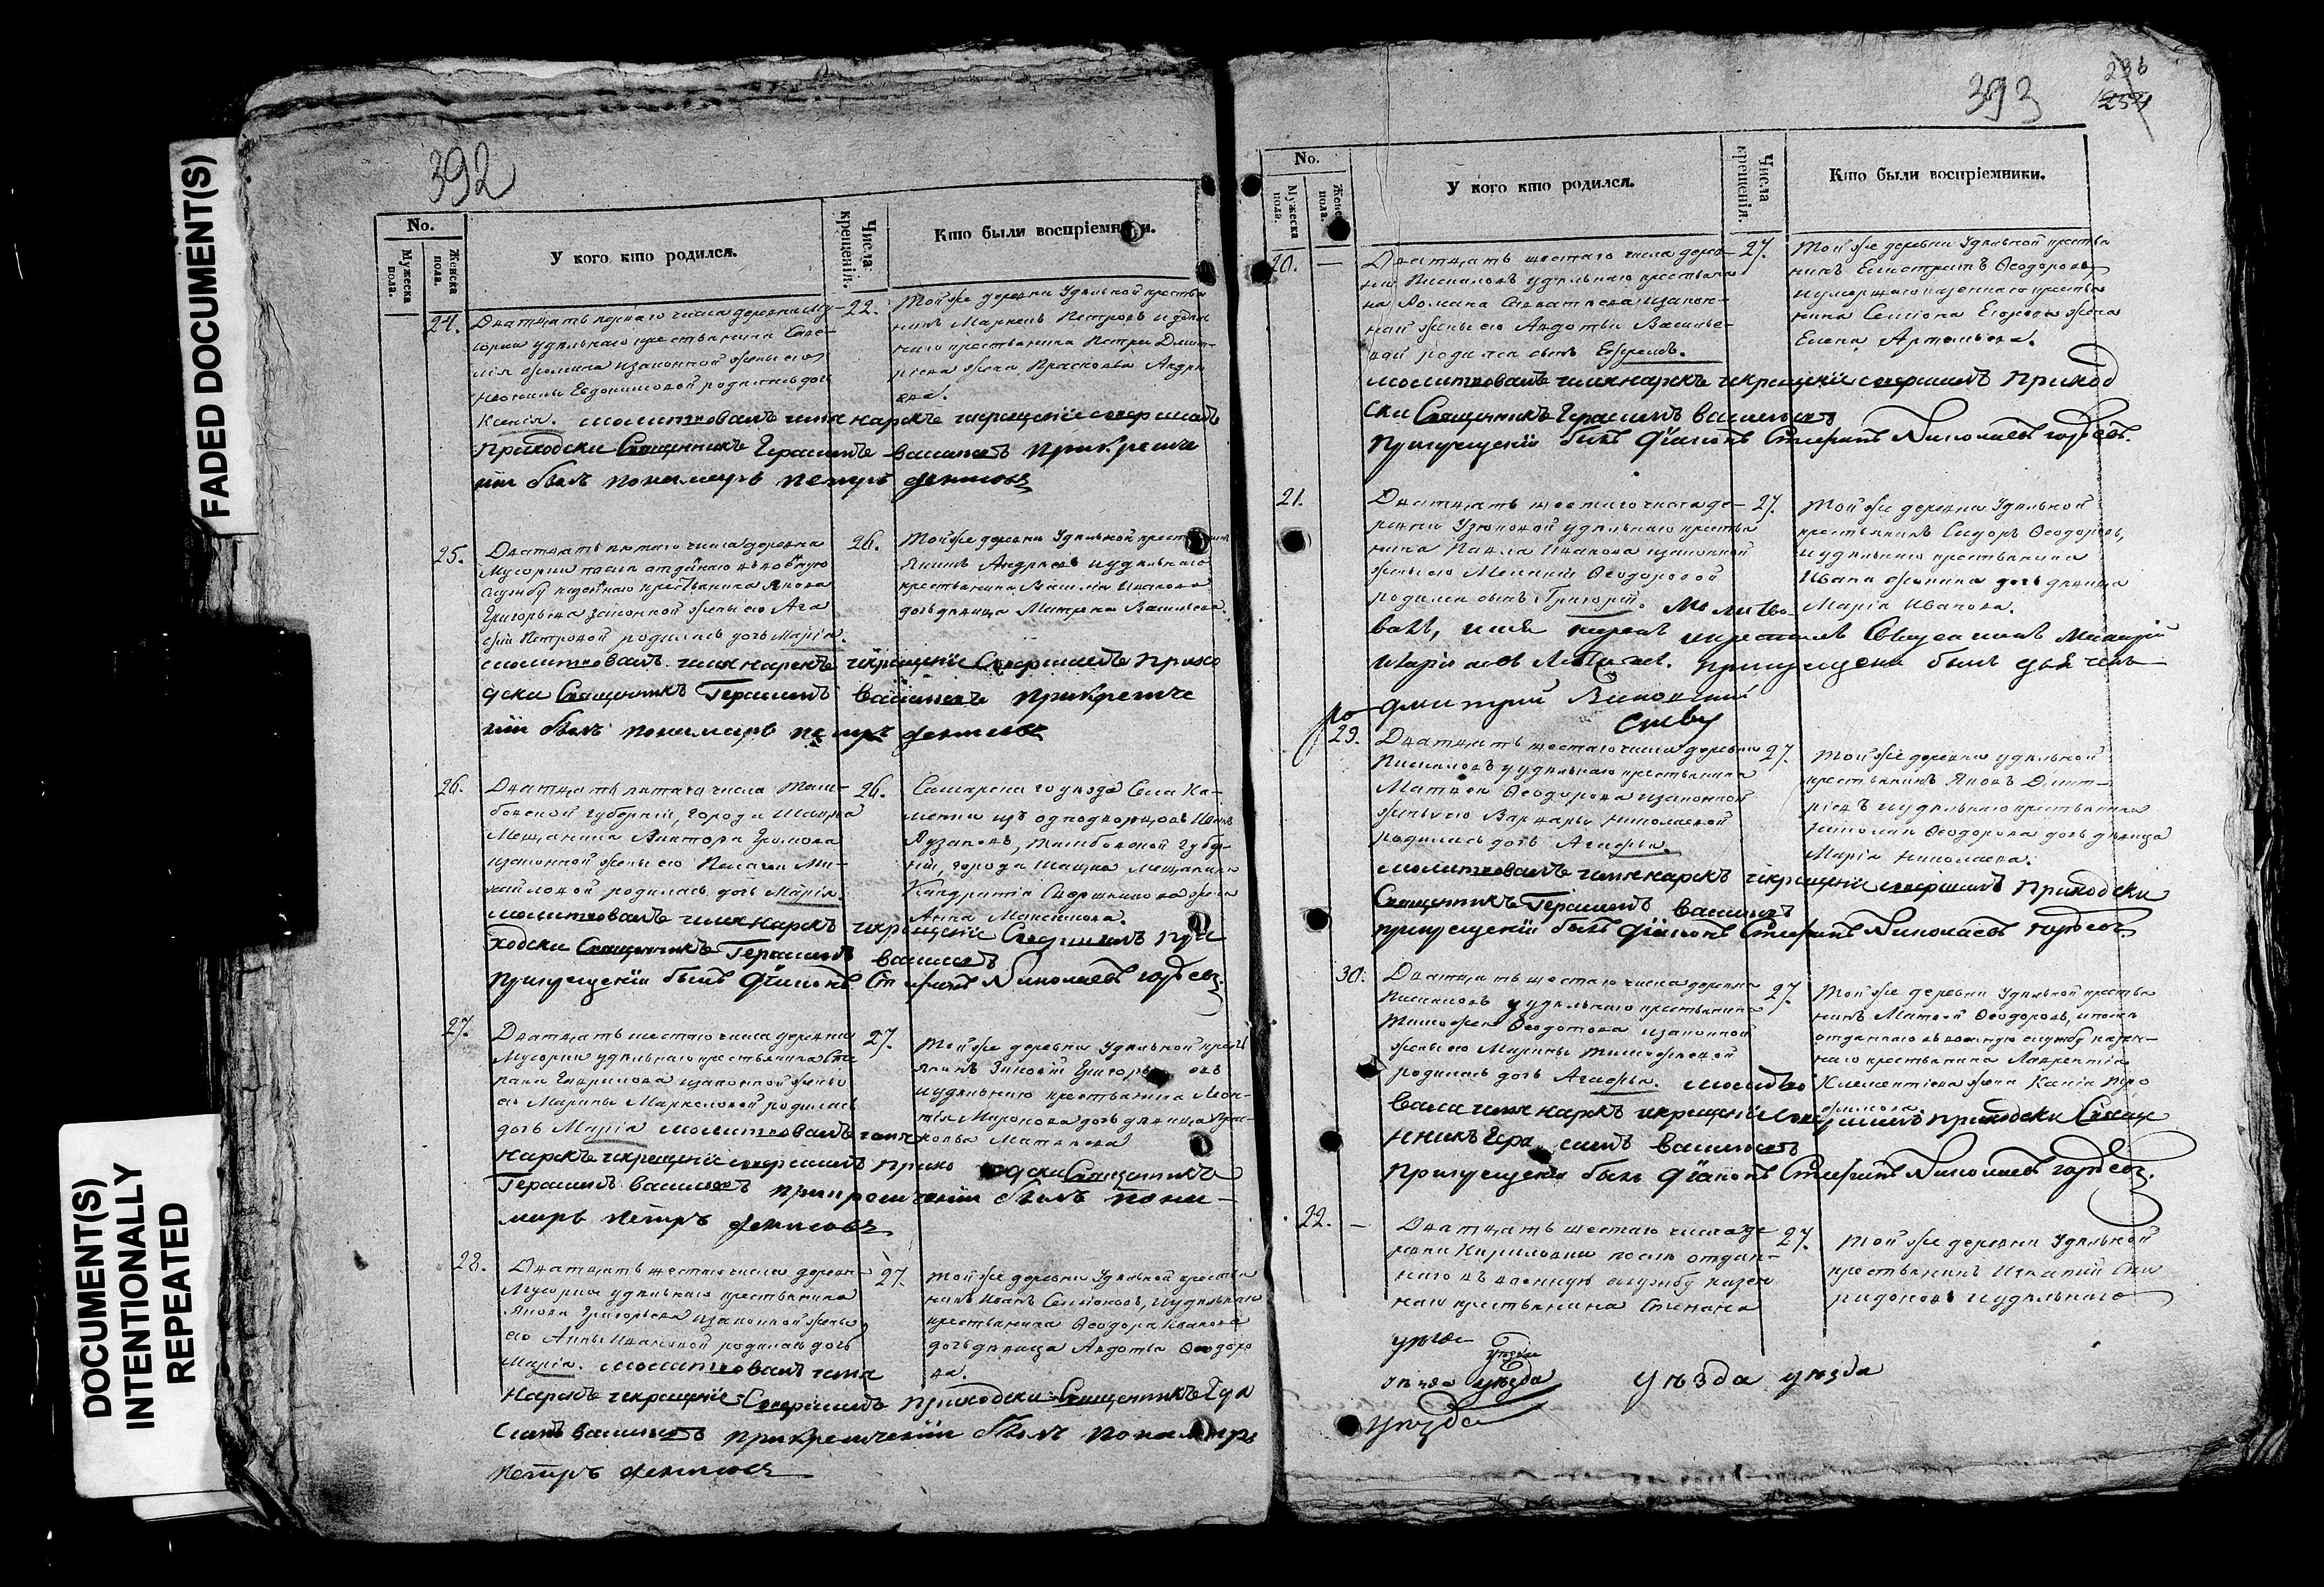 FADED DOCUMENT(S)
DOCUMENT(S)
INTENTIONALLY
REPEATED
392
No.
Мужеска пола.
Женска пола.
У кого кто родился.
Числа крещенія.
Кто были воспріемники.
24.
Дватцать перваго числа деревни Му-
сорки удельнаго крестьянина Саве-
лія Фомина изаконной жены его
Евдокимовой родилась дочь
Ксенія. молитвовалъ имя нарекъ икрещеніе совершилъ
приходски Священникъ Герасимъ Васильевъ прикреще
ніи былъ пономарь петръ денисовъ
22.
Той же деревни Удельной крестья
нинъ Маркелъ Петровъ и удель
наго крестьянина Петра Дмит-
ріева жена Прасковья Андре
ева.
25.
Дватцать пятаго числа деревни
Мусорки послѣ отданнаго въ военную
службу казеннаго крестьянина Якова
Григорьева законной жены его Ага
фіи Петровой родилась дочь Марія.
молитвовалъ имя нарекъ икрещеніе Совершилъ прихо
дски Священникъ Герасимъ Васильевъ прикреще
ніи былъ пономарь петръ денисовъ
26.
Той же деревни Удельной крестьянинъ
Андреевъ иудельнаго
крестьянина Василія Иванова
дочь девица Матрена Васильева.
26.
Дватцать пятаго числа Там-
бовской Губерніи, города Шацка
Мещанина Виктора Громова
изаконной жены его Пелагеи Ми-
хайловой родилась дочь Марія.
молитвовалъ имя нарекъ икрещеніе Совершилъ при
ходски Священникъ Герасимъ Васильевъ
присущеніи былъ діаконъ Стефанъ Николаевъ
26.
Самарска го уезда Села Ка-
менки изъ однодворцовъ Иванъ
Тамбовской Губер-
ніи, города Шацка Мещанина
Кандратія жена
Анна Максимова.
27.
Дватцать шестаго числа деревни
Мусорки удельнаго крестьянина Сте
пана Гаврилова изаконной жены
его Марины Маркеловой родилась
дочь Марія молитвовалъ имя
нарекъ икрещеніе совершилъ прихо дски Священникъ
Герасимъ Васильевъ прикрещеніи былъ поно-
марь петръ денисовъ
27.
Той же деревни Удельной кресть
янинъ Зиновій Григорьевъ
иудельнаго крестьянина Леон-
тія Миронова дочь девица Прас-
ковья Матвеева
28.
Дватцать шестаго числа деревни
Мусорки удельнаго крестьянина
Якова Григорьева изаконной жены
его Анны Ивановой родилась дочь
Марія. молитвовалъ имя
нарекъ икрещеніе Совершилъ приходски Священникъ Гера
симъ Васильевъ прикрещеніи былъ пономарь
петръ денисовъ
27.
Той же деревни Удельной крестья
нинъ Иванъ Семеновъ, иудельнаго
крестьянина Ѳеодора Иванова
дочь девица Авдотья Ѳеодоро
ва.
393
236
254
No.
Мужеска пола.
Женска пола.
У кого кто родился.
Числа крещенія.
Кто были воспріемники.
20. —
Дватцать шестаго числа дерев-
ни Пискаловъ удельнаго крестьяни
на Романа изакон-
ной жены его Авдотьи Василье-
вой родился сынъ Ефремъ.
молитвовалъ имя нарекъ икрещеніе совершилъ приход
ски Священникъ Герасимъ Васильевъ
присущеніи былъ діаконъ Стефанъ Николаевъ
27.
Той же деревни Удельной крестья
нинъ Елистратъ Ѳеодоровъ
иумершаго казеннаго крестья
нина Семіона Егорова жена
Елена Артемьева.
21.
Дватцать шестаго числа де-
ревни Узюковой удельнаго крестья
нина Павла Иванова изаконной
жены его Меланіи Ѳеодоровой
родился сынъ Григорій. Молитво
валъ, имя нарекъ икрестилъ Священникъ
присущеніи былъ дьячекъ
дмитрій
27.
Той же деревни Удельной
крестьянинъ Сидоръ Ѳеодоровъ,
иудельнаго крестьянина
Ивана Фомина дочь девица
Марія Иванова.
29.
Дватцать шестаго числа деревни
Пискаловъ удельнаго крестьянина
Матвея Ѳеодорова изаконной
жены его Варвары Николаевой
родилась дочь Агафья.
молитвовалъ имя нарекъ икрещеніе совершилъ приходски
Священникъ Герасимъ Васильевъ
присущеніи былъ діаконъ Стефанъ Николаевъ
27.
Той же деревни удельной
крестьянинъ Яковъ Дмит-
ріевъ иудельнаго крестьянина
Николая Ѳеодорова дочь девица
Марія Николаева.
30.
Дватцать шестаго числа деревни
Пискаловъ удельнаго крестьянина
Тимофея Ѳеодотова изаконной
жены его Марины Тимофеевой
родилась дочь Агафья. молитво
валъ имя нарекъ икрещеніе совершилъ приходски Священ
никъ Гера симъ Васильевъ
присущеніи былъ діаконъ Стефанъ Николаевъ
27.
Той же деревни Удельной крестья
нинъ Матвей Ѳеодоровъ, ипосле
отданнаго въ военную службу казен-
наго крестьянина Лаврентія
Клементіева жена Ксенія Тро
фимова.
22. —
Дватцать шестаго числа де
ревни Кириловки после отдан-
наго въ военную службу казен
наго крестьянина Степана
27.
Той же деревни Удельной
крестьянинъ Игнатій Спи
ридоновъ иудельнаго
уезда
уезда
уезда уезда
уезда
уезда уезда